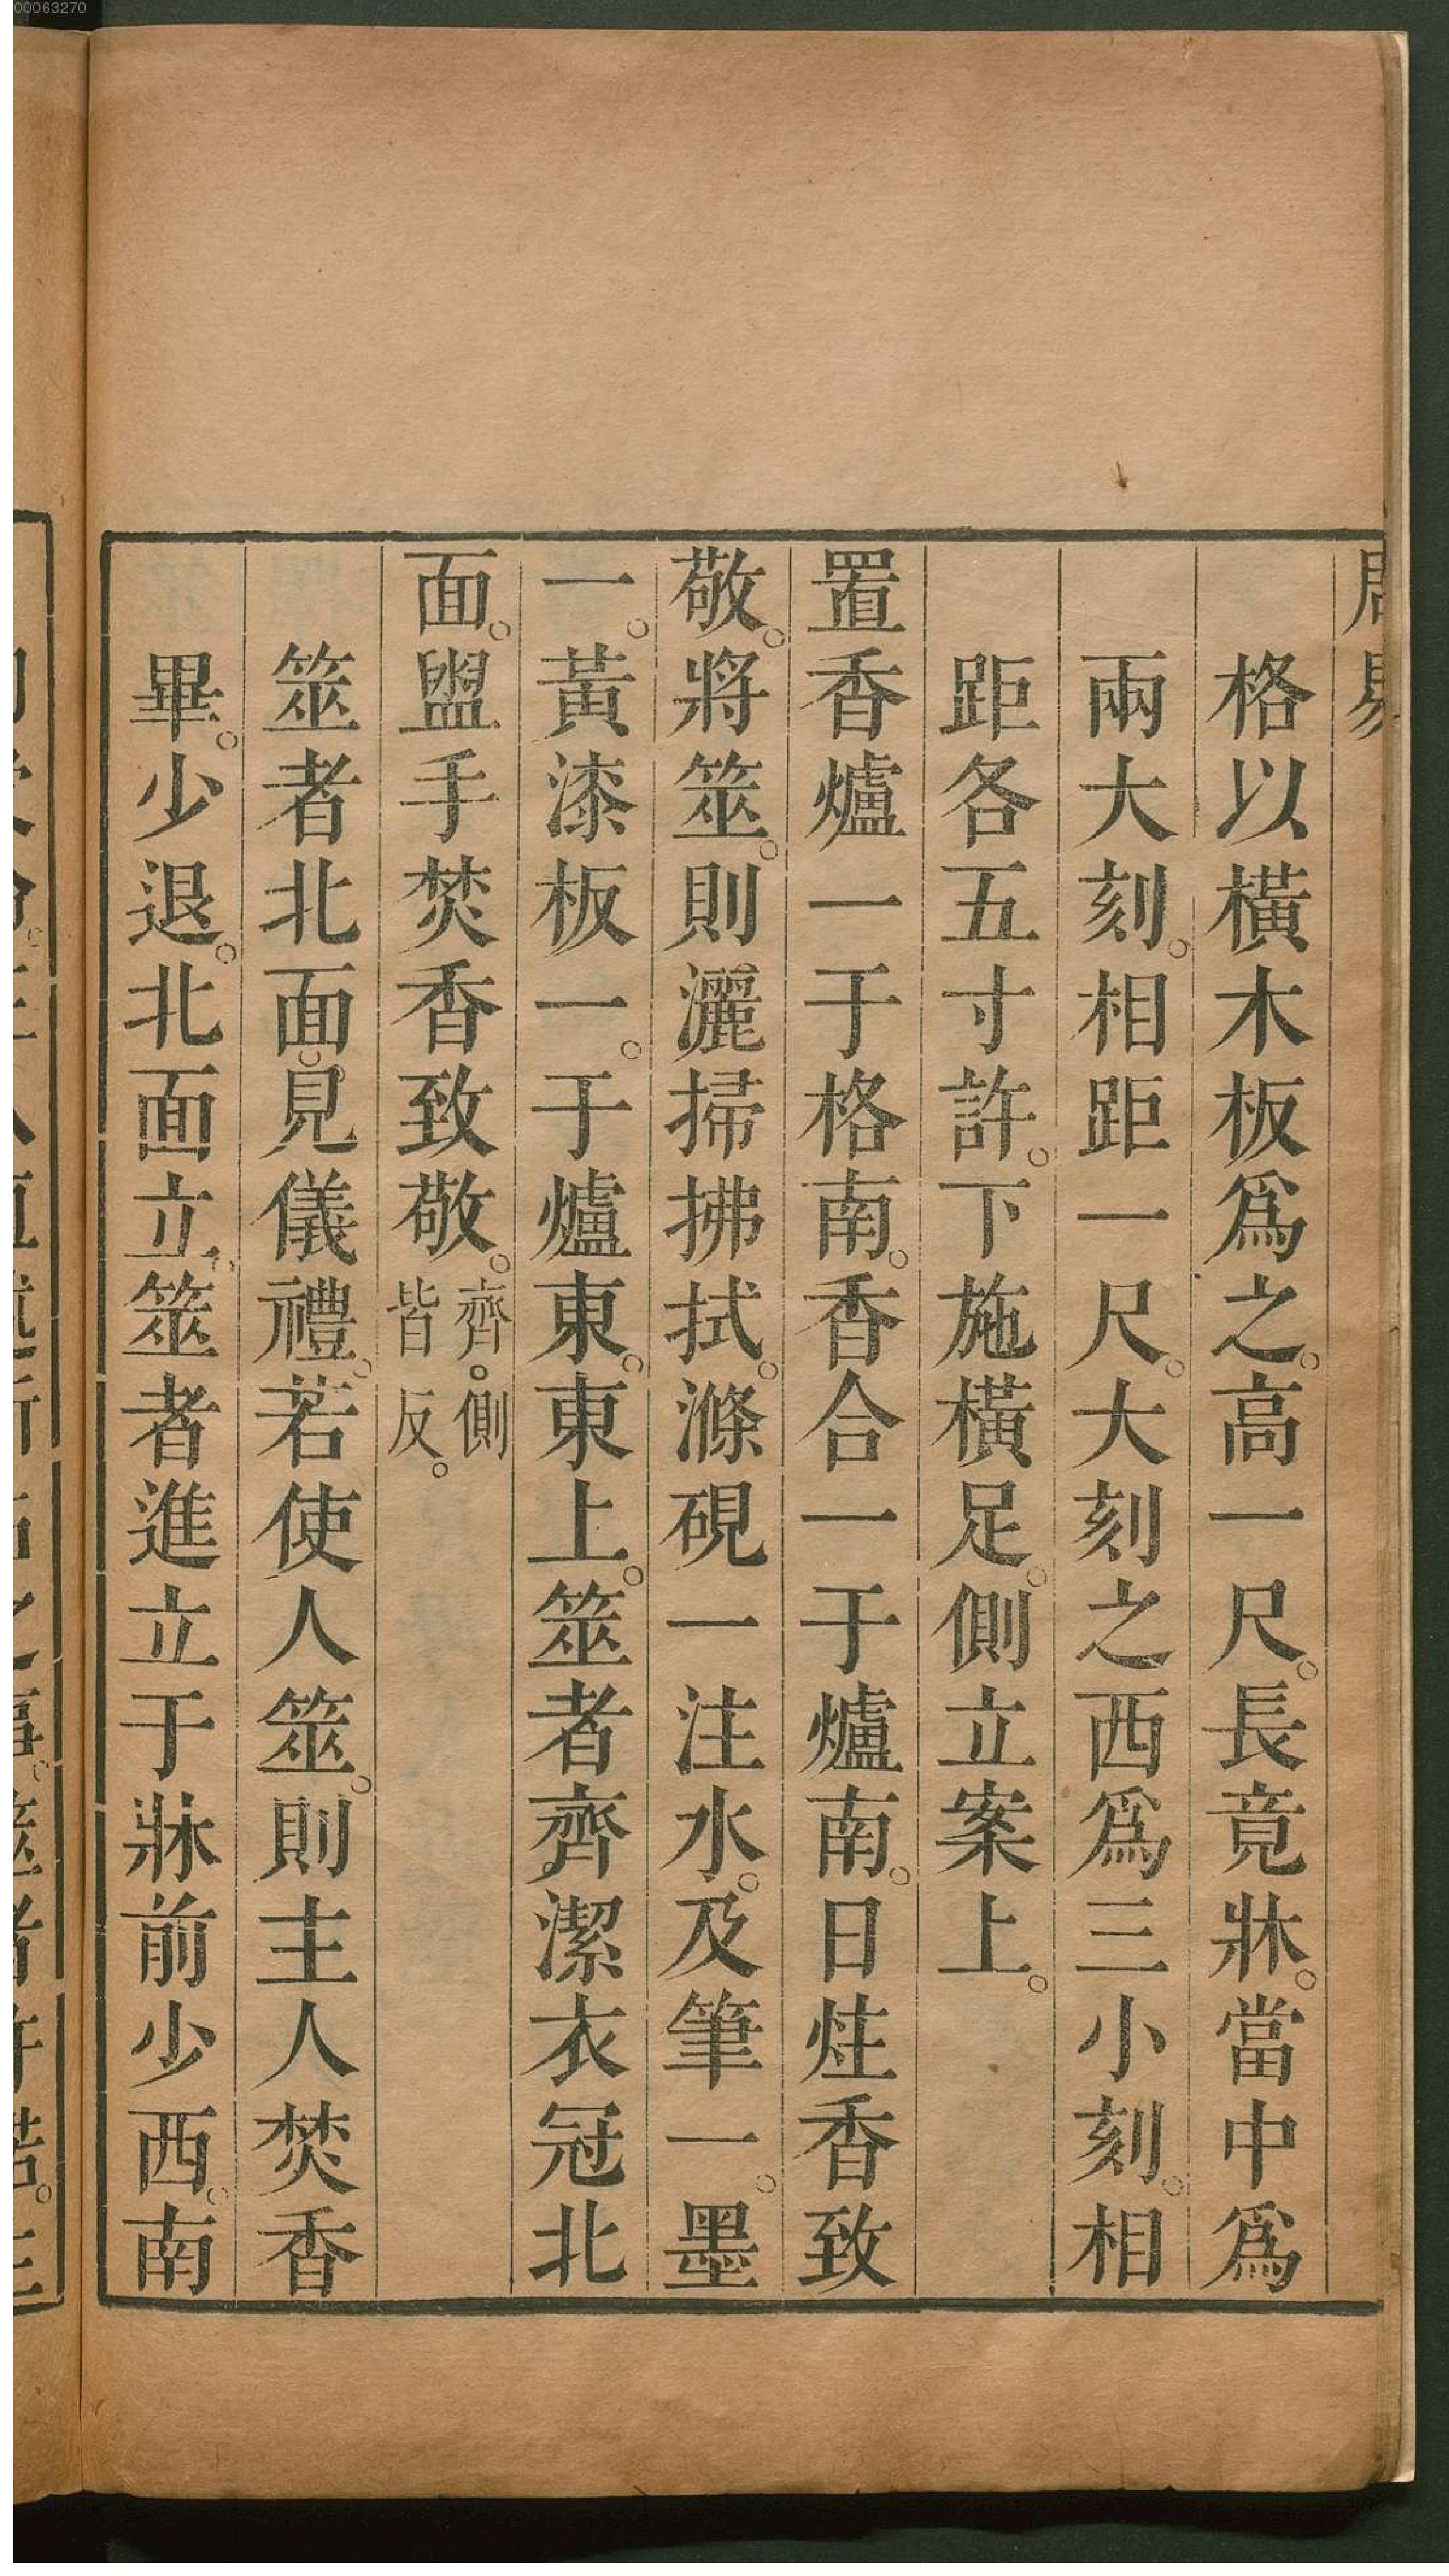 00063270
周易
格以橫木板爲之。高一尺。長竟牀。當中爲
兩大刻。相距一尺。大刻之西爲三小刻。相
距各五寸許。下施橫足。側立案上。
置香爐一于格南。香合一于爐南。日炷香致
敬。將筮。則灑掃拂拭。滌硯一注水。及筆一。墨
一。黃漆板一。于爐東。東上。筮者齊潔衣冠北
面。盥手焚香致敬。齊。側
皆反。
筮者北面。見儀禮。若使人筮。則主人焚香
畢。少退。北面立。筮者進立于牀前少西。南